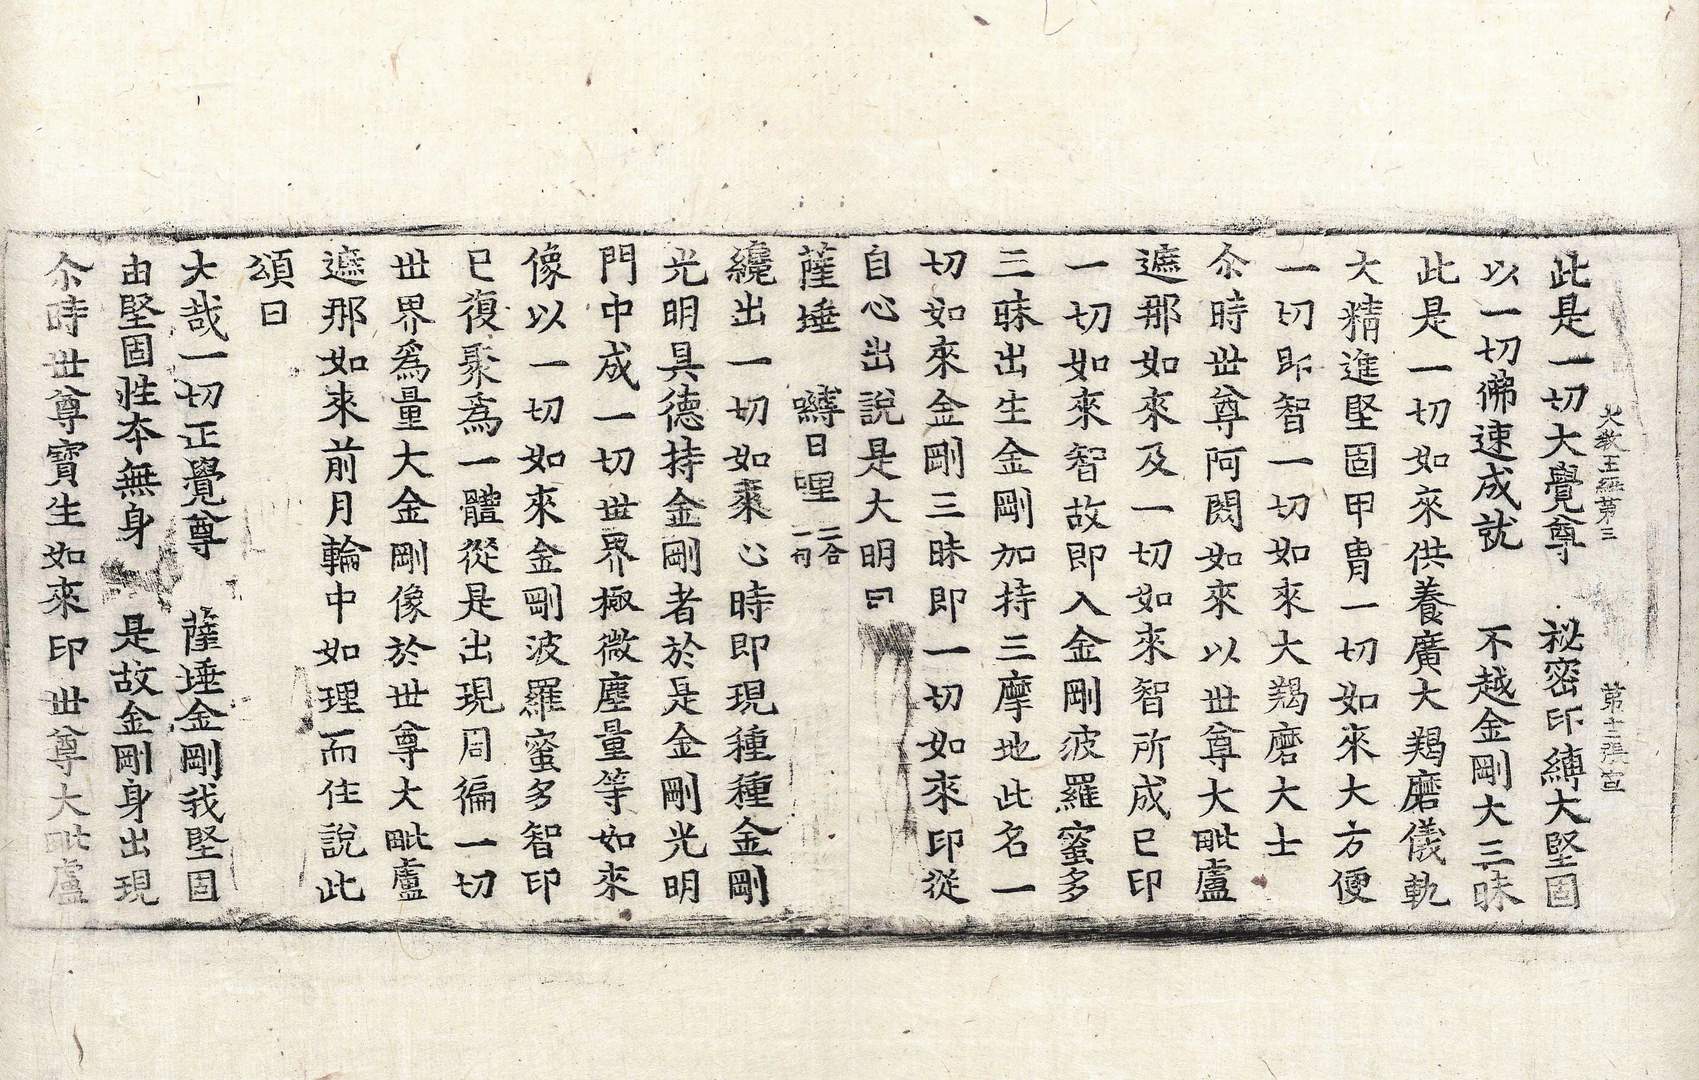 大教王經第三 第十二張 宣
此是一切大覺尊 祕密印縛大堅固
以一切佛速成就 不越金剛大三昧
此是一切如來供養廣大羯磨儀軌
大精進堅固甲冑一切如來大方便
一切印智一切如來大羯磨大士
尒時世尊阿閦如來以世尊大毗盧
遮那如來及一切如來智所成已印
一切如來智故即入金剛波羅蜜多
三昧出生金剛加持三摩地此名一
切如來金剛三昧即一切如來印從
自心出說是大明曰
薩埵 嚩日哩二合一句
纔出一切如來心時即現種種金剛
光明具德持金剛者於是金剛光明
門中成一切世界極微塵量等如來
像以一切如來金剛波羅蜜多智印
已復聚為一體從是出現周徧一切
世界為量大金剛像於世尊大毗盧
遮那如來前月輪中如理而住說此
頌曰
大哉一切正覺尊 薩埵金剛我堅固
由堅固性本無身 是故金剛身出現
尒時世尊寶生如來印世尊大毗盧